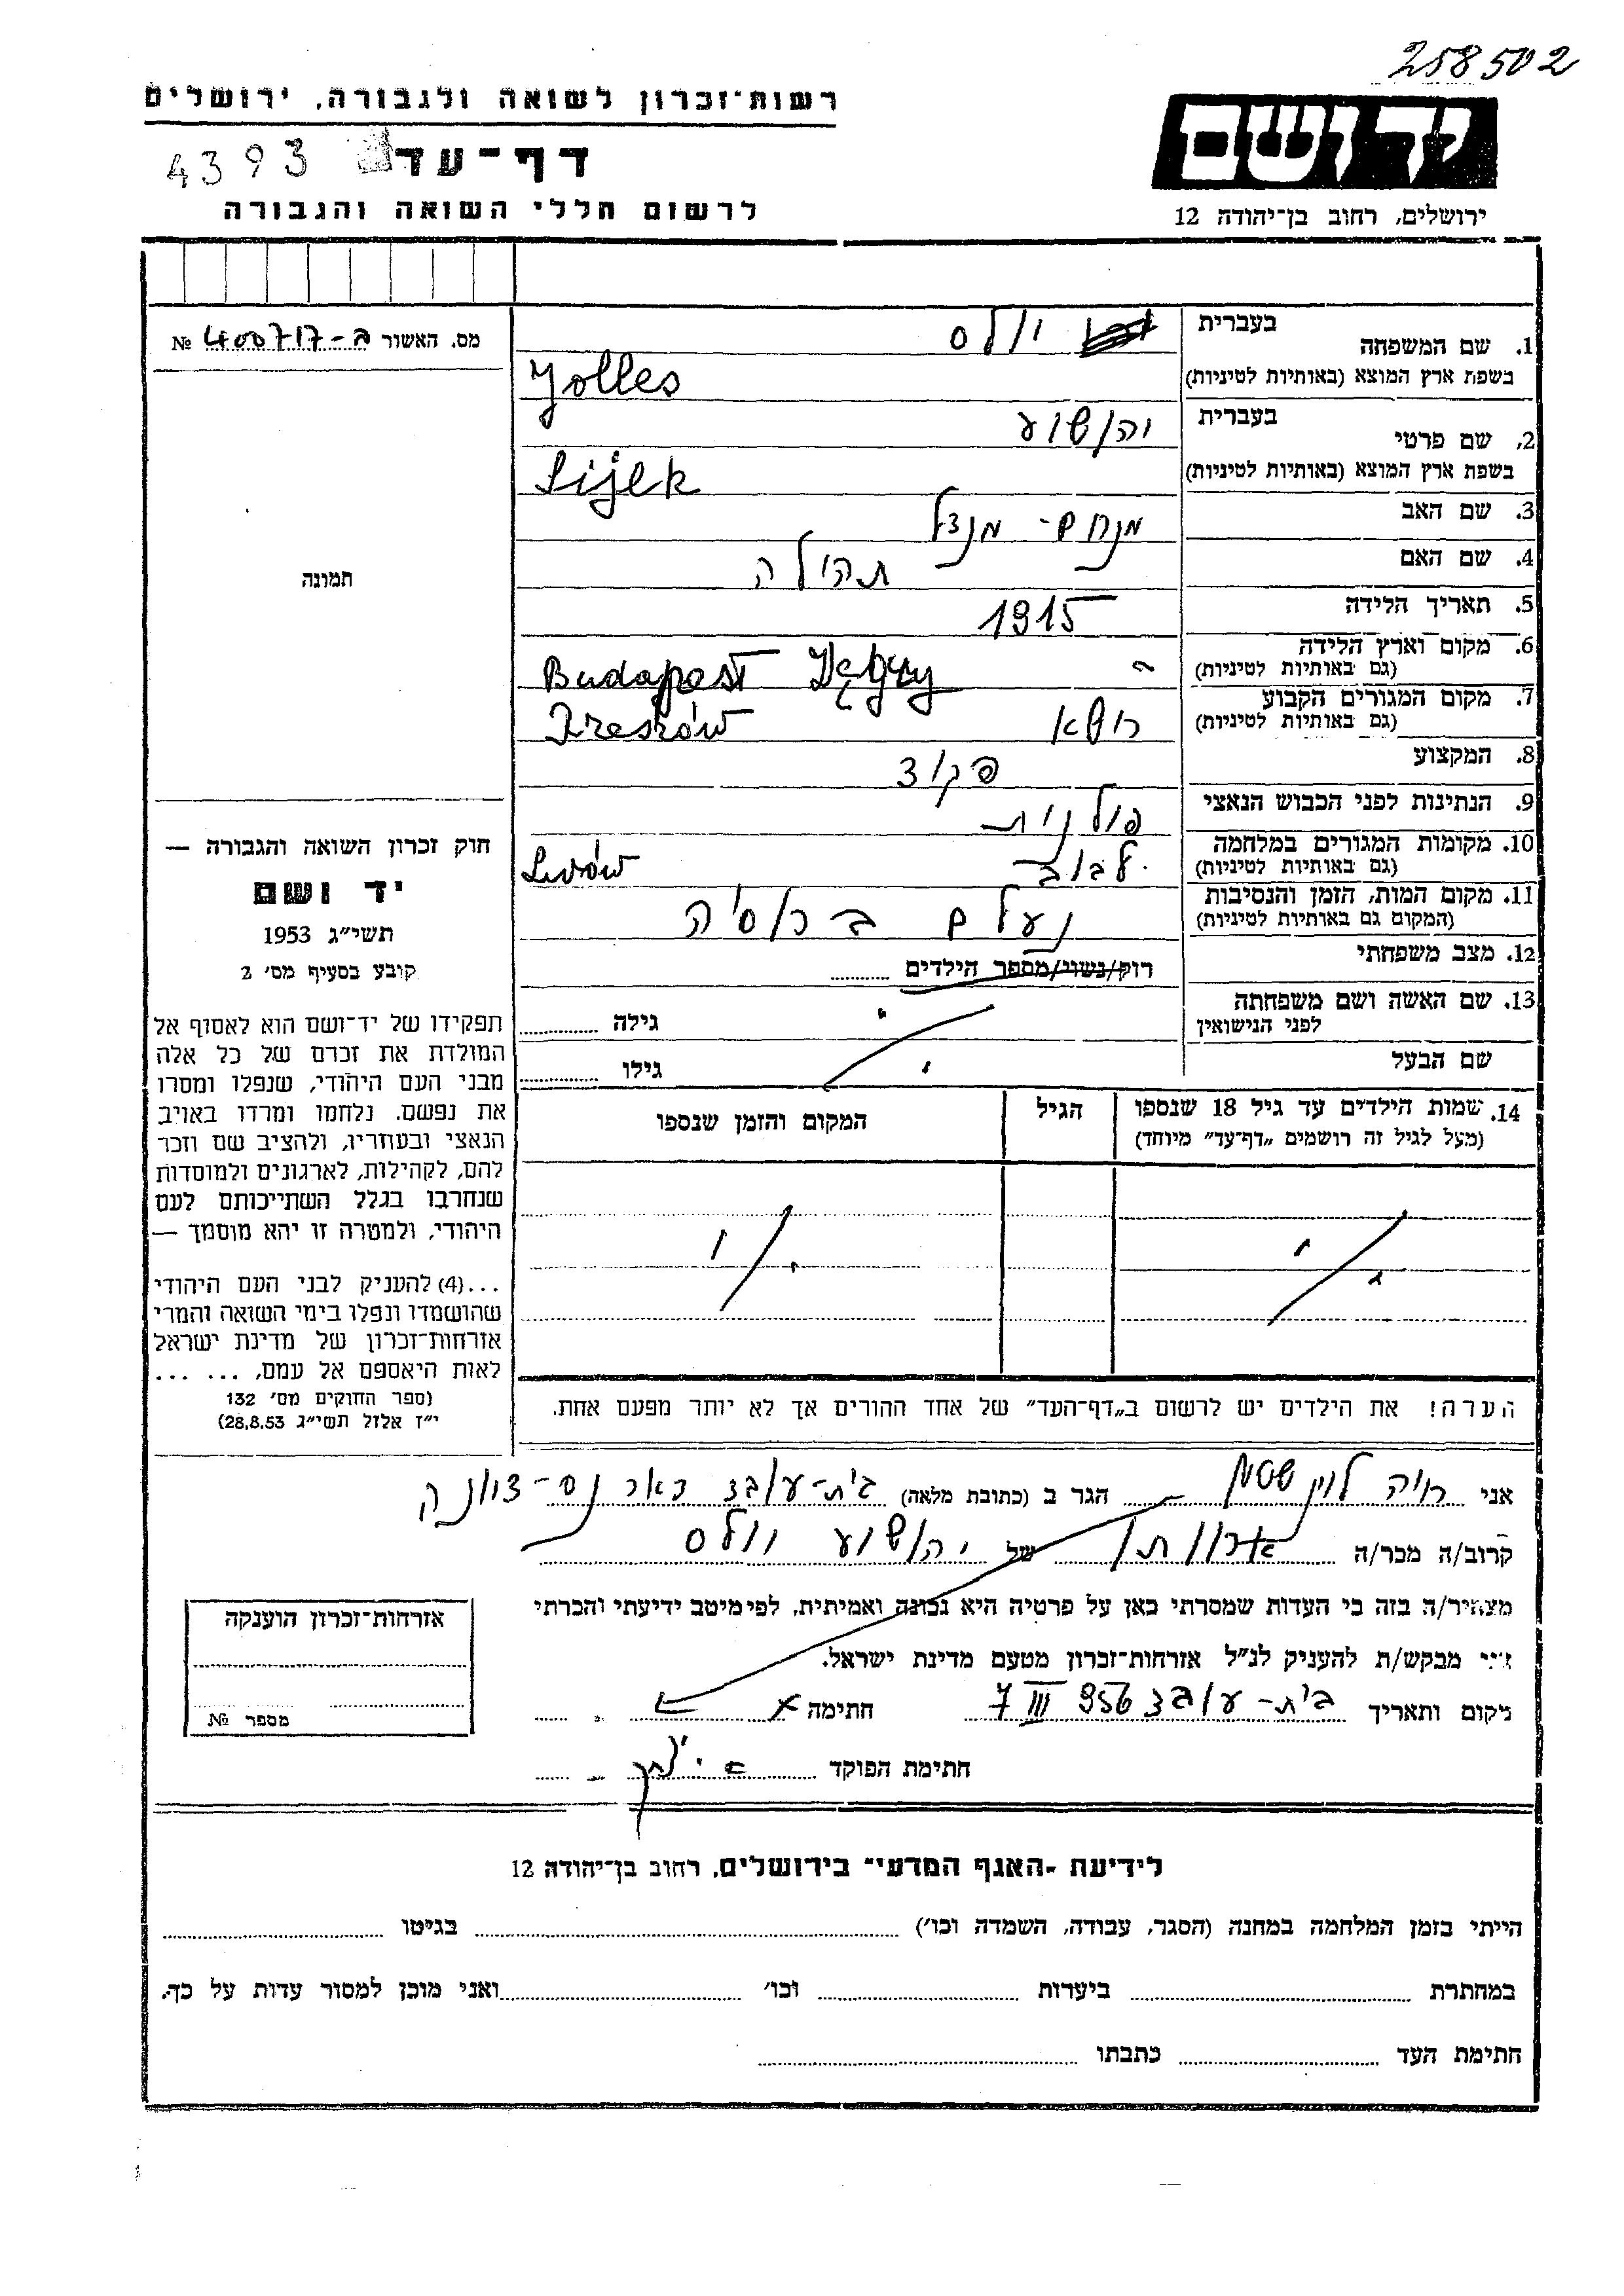 258502
רשות־זכרון לשואה ולגבורה, ירושלים
יד ושם
4393 דף־עד
לרשום חללי השואה והגבורה
ירושלים, רחוב בן־יהודה 12
מס. האשור ב-400717 №
תמונה
1. שם המשפחה
בעברית יולס
בשפת ארץ המוצא (באותיות לטיניות) Jolles
2. שם פרטי
בעברית יהושע
בשפת ארץ המוצא (באותיות לטיניות)
3. שם האב מנחם- מנדל
4. שם האם תהילה
5. תאריך הלידה 1915
6. מקום וארץ הלידה
(גם באותיות לטיניות) Budapest Węgry
7. מקום המגורים הקבוע
(גם באותיות לטיניות) Rzeszów
8. המקצוע פקיד
9. הנתינות לפני הכבוש הנאצי פולנית
10. מקומות המגורים במלחמה
(גם באותיות לטיניות) לבוב Lwów
11. מקום המות, הזמן והנסיבות
(המקום גם באותיות לטיניות) נעלם ברוסיה
12. מצב משפחתי רוק/נשוי/מספר הילדים
13. שם האשה ושם משפחתה
לפני הנישואין גילה
שם הבעל גילו
14. שמות הילדים עד גיל 18 שנספו הגיל המקום והזמן שנספו
(מעל לגיל זה רושמים „דף־עד” מיוחד)
הערה! את הילדים יש לרשום ב„דף־העד” של אחד ההורים אך לא יותר מפעם אחת.
חוק זכרון השואה והגבורה —
יד ושם
תשי״ג 1953
קובע בסעיף מס׳ 2
תפקידו של יד־ושם הוא לאסוף אל
המולדת את זכרם של כל אלה
מבני העם היהודי, שנפלו ומסרו
את נפשם. נלחמו ומרדו באויב
הנאצי ובעוזריו, ולהציב שם וזכר
להם, לקהילות, לארגונים ולמוסדות
שנחרבו בגלל השתייכותם לעם
היהודי, ולמטרה זו יהא מוסמך —
...(4) להעניק לבני העם היהודי
שהושמדו ונפלו בימי השואה והמרי
אזרחות־זכרון של מדינת ישראל
לאות היאספם אל עמם, ... ...
(ספר החוקים מס׳ 132
י״ז אלול תשי״ג 28.8.53)
אני חיה הגר ב (כתובת מלאה) בית-עובד באר נס-ציונה
קרוב/ה מכר/ה אחותו של יהושע יולס
מצהיר/ה בזה כי העדות שמסרתי כאן על פרטיה היא נכונה ואמיתית, לפי מיטב ידיעתי והכרתי
אני מבקש/ת להעניק לנ״ל אזרחות־זכרון מטעם מדינת ישראל.
מקום ותאריך בית-עובד 7 III 956 חתימה
חתימת הפוקד
אזרחות־זכרון הוענקה
מספר №
לידיעת ״האגף המדעי״ בירושלים, רחוב בן־יהודה 12
הייתי בזמן המלחמה במחנה (הסגר, עבודה, השמדה וכו׳) בגיטו
במחתרת ביערות וכו׳ ואני מוכן למסור עדות על כך.
חתימת העד כתבתו